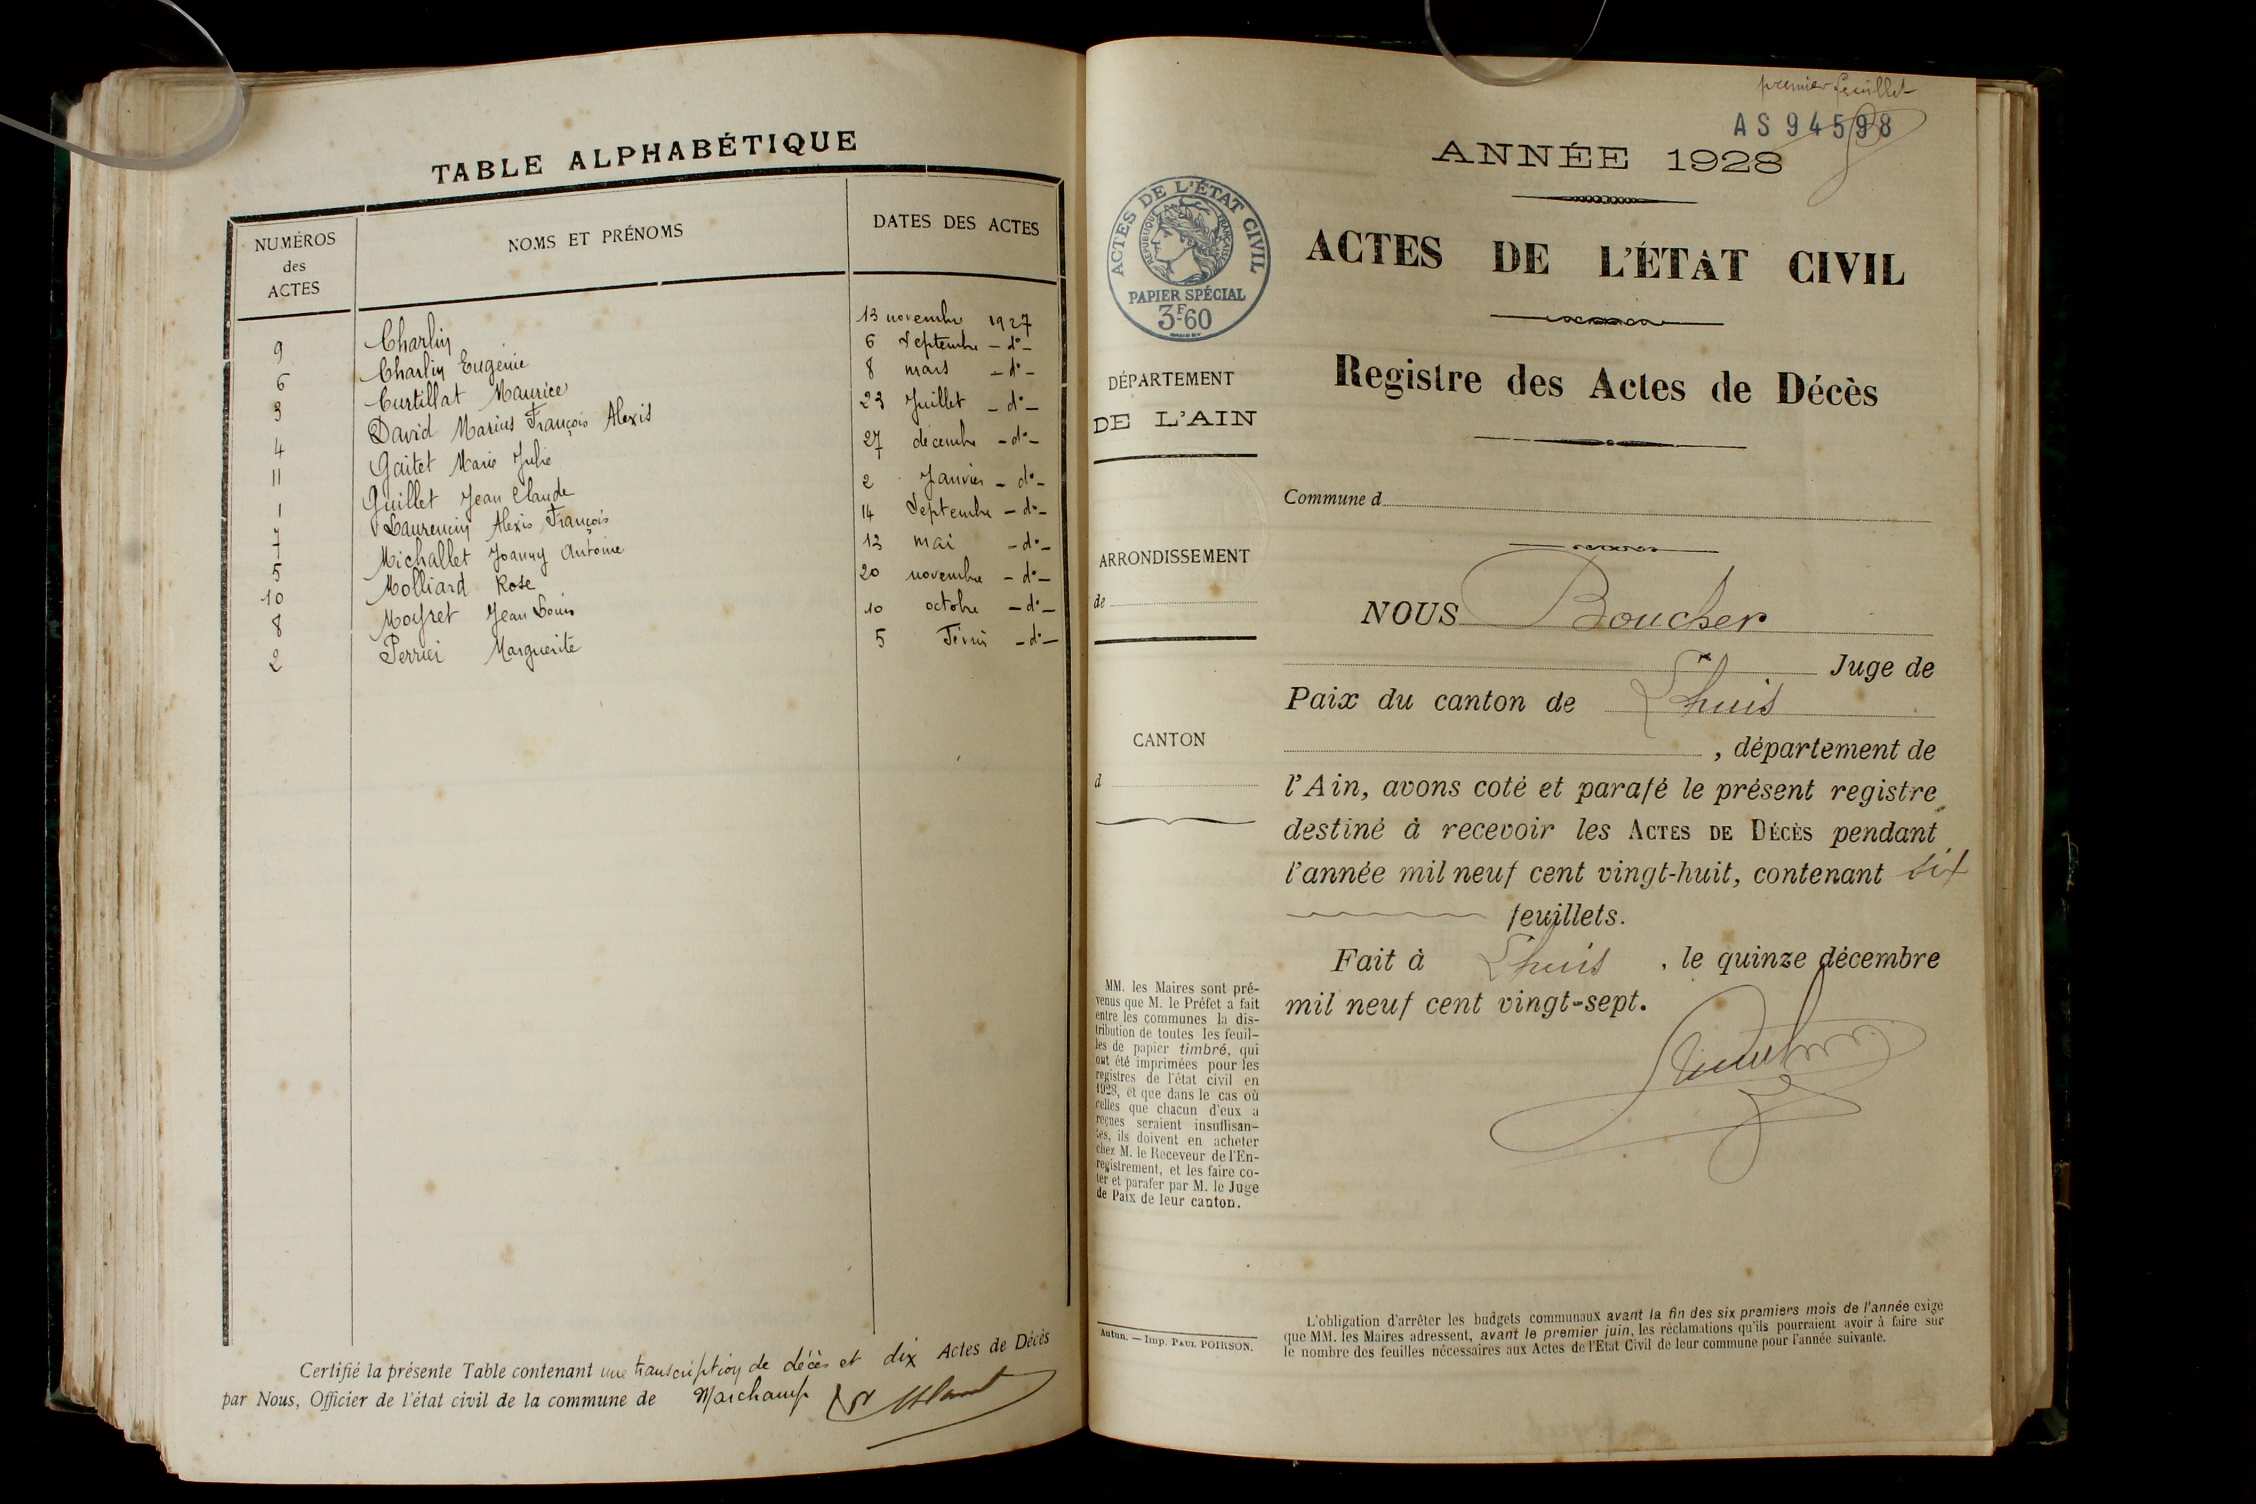 TABLE ALPHABÉTIQUE
NUMÉROS des ACTES NOMS ET PRÉNOMS DATES DES ACTES
9 Charlin 13 novembre 1927
6 Charlin Eugénie 6 Septembre - d° -
3 Curtillat Maurice 8 mars - d° -
4 David Marius François Alexis 23 Juillet - d° -
11 Gaitet Marie Julie 27 décembre - d° -
1 Guillet Jean Claude 2 Janvier - d° -
7 Laurencin Alexis François 14 Septembre - d° -
5 Michallet Joanny Antoine 13 mai - d° -
10 Molliard Rose 20 novembre - d° -
8 Moyret Jean Louis 10 octobre - d° -
2 Perrier Marguerite 5 - d° -
Certifié la présente Table contenant une transcription de décès et dix Actes de Décès
par Nous, Officier de l'état civil de la commune de Marchamp
premier feuillet
AS 94598
ANNÉE 1928
ACTES DE L'ÉTAT CIVIL
RÉPUBLIQUE FRANÇAISE
PAPIER SPÉCIAL
3F.60
ACTES DE L'ÉTAT CIVIL
Registre des Actes de Décès
DÉPARTEMENT
DE L'AIN
ARRONDISSEMENT
de
CANTON
d
Commune d
NOUS Boucher
Juge de
Paix du canton de Lhuis
, département de
l'Ain, avons coté et parafé le présent registre
destiné à recevoir les ACTES DE DÉCÈS pendant
l'année mil neuf cent vingt-huit, contenant six
feuillets.
Fait à Lhuis , le quinze décembre
mil neuf cent vingt-sept.
MM. les Maires sont pré-
venus que M. le Préfet a fait
entre les communes la dis-
tribution de toutes les feuil-
les de papier timbré, qui
ont été imprimées pour les
registres de l'état civil en
1928, et que dans le cas où
celles que chacun d'eux a
reçues seraient insuffisan-
tes, ils doivent en acheter
chez M. le Receveur de l'En-
registrement, et les faire co-
ter et parafer par M. le Juge
de Paix de leur canton.
Autun. — Imp. PAUL POIRSON.
L'obligation d'arrêter les budgets communaux avant la fin des six premiers mois de l'année exige
que MM. les Maires adressent, avant le premier juin, les réclamations qu'ils pourraient avoir à faire sur
le nombre des feuilles nécessaires aux Actes de l'Etat Civil de leur commune pour l'année suivante.